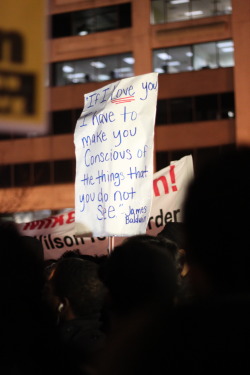 If I love you
I have to
make you
Conscious of
the things that
you do not
See"
James
Baldwin
n!
rder